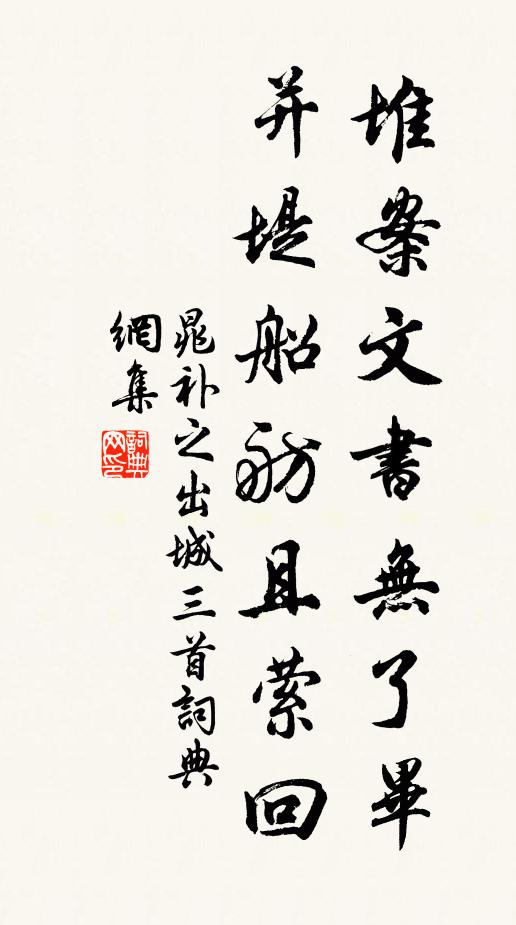 堆案文書無了畢
并堤船舫且縈回
晁补之出城三首詞典
網集
詞典
网印